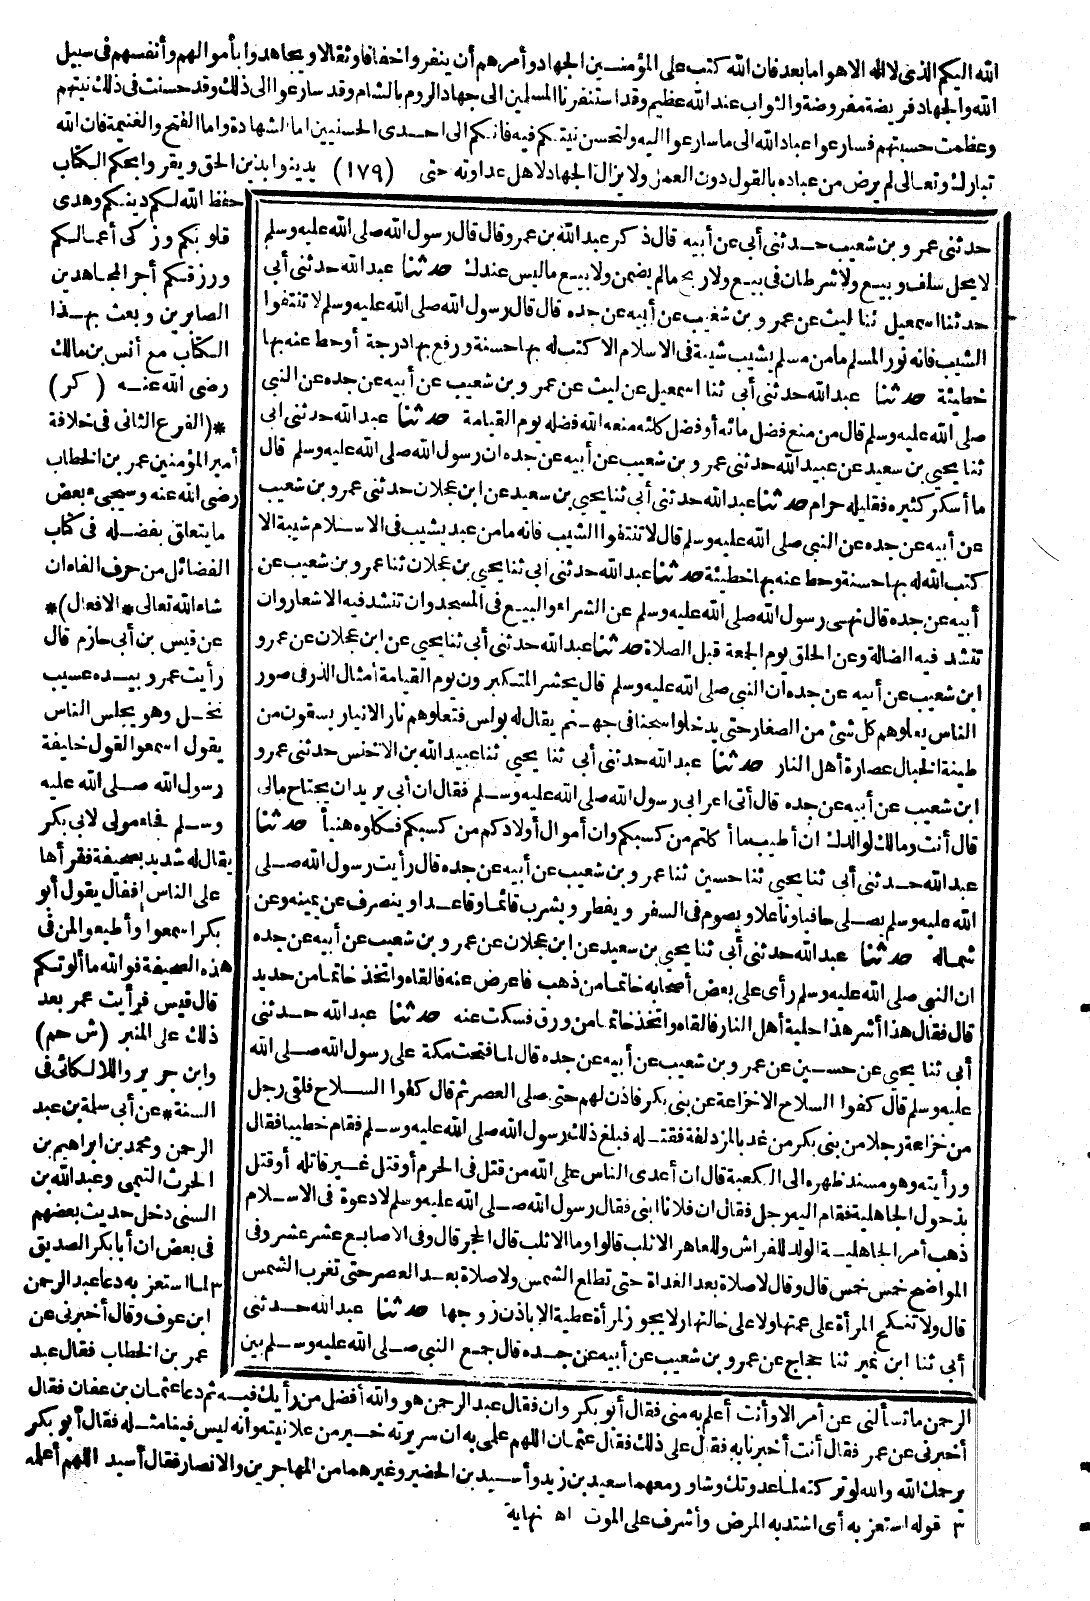 الله اليكم الذى لا اله الا هو اما بعد فان الله كتب على المؤمنين الجهاد وأمرهم أن ينفروا خفافا وثقالا ويجاهدوا بأموالهم وأنفسهم فى سبيل
الله والجهاد فريضة مفروضة والثواب عند الله عظيم وقد استنفرنا المسلمين الى جهاد الروم بالشام وقد سارعوا الى ذلك وقد حسنت فى ذلك نيتهم
وعظمت حسبتهم فسارعوا عباد الله الى ما سارعوا اليه ولتحسن نيتكم فيه فانكم الى احدى الحسنيين اما الشهادة واما الفتح والغنيمة فان الله
تبارك وتعالى لم يرض من عباده بالقول دون العمل ولا يزال الجهاد لاهل عداوته حتى (١٧٩) يدينوا بدين الحق ويقروا بحكم الكتاب
حفظ الله لكم دينكم وهدى
قلوبكم وزكى أعمالكم
ورزقكم أجر المجاهدين
الصابرين وبعث بهذا
الكتاب مع أنس بن مالك
رضى الله عنه (كر)
*(الفرع الثانى فى خلافة
أمير المؤمنين عمر بن الخطاب
رضى الله عنه وسيجىء بعض
ما يتعلق بفضله فى كتاب
الفضائل من حرف الفاء ان
شاء الله تعالى * الافعال)*
عن قيس بن أبى حازم قال
رأيت عمر وبيده عسيب
نخل وهو يجلس الناس
يقول اسمعوا لقول خليفة
رسول الله صلى الله عليه
وسلم فجاء مولى لابى بكر
يقال له شديد بصحيفة فقرأها
على الناس فقال يقول أبو
بكر اسمعوا وأطيعوا لمن فى
هذه الصحيفة فوالله ما ألوتكم
قال قيس فرأيت عمر بعد
ذلك على المنبر (ش حم)
وابن جرير واللالكائى فى
السنة * عن أبى سلمة بن عبد
الرحمن ومحمد بن ابراهيم بن
الحرث التيمى وعبد الله بن
السنى دخل حديث بعضهم
فى بعض ان أبا بكر الصديق
٣ لما استعز به دعا عبد الرحمن
ابن عوف وقال أخبرنى عن
عمر بن الخطاب فقال عبد
الرحمن ما تسألنى عن أمر الا وأنت أعلم به منى فقال أبو بكر وان فقال عبد الرحمن هو والله أفضل من رأيك فيه ثم دعا عثمان بن عفان فقال
أخبرنى عن عمر فقال أنت أخبرنا به فقال على ذلك فقال عثمان اللهم علمى به ان سريرته خير من علانيته وأنه ليس فينا مثله فقال أبو بكر
يرحمك الله والله لو تركته لما عدوتك وشاور معهما سعيد بن زيد وأسيد بن الحضير وغيرهما من المهاجرين والانصار فقال أسيد اللهم أعلمه
٣ قوله استعز به أى اشتد به المرض وأشرف على الموت اه نهاية
حدثنى عمرو بن شعيب حدثنى أبى عن أبيه قال ذكر عبد الله بن عمرو قال قال رسول الله صلى الله عليه وسلم
لا يحل سلف وبيع ولا شرطان فى بيع ولا ربح ما لم يضمن ولا بيع ما ليس عندك حدثنا عبد الله حدثنى أبى
حدثنا اسمعيل ثنا ليث عن عمرو بن شعيب عن أبيه عن جده قال قال رسول الله صلى الله عليه وسلم لا تنتفوا
الشيب فانه نور المسلم ما من مسلم يشيب شيبة فى الاسلام الا كتب له بها حسنة ورفع بها درجة أو حط عنه بها
خطيئة حدثنا عبد الله حدثنى أبى ثنا اسمعيل عن ليث عن عمرو بن شعيب عن أبيه عن جده عن النبى
صلى الله عليه وسلم قال من منع فضل مائه أو فضل كلئه منعه الله فضله يوم القيامة حدثنا عبد الله حدثنى أبى
ثنا يحيى بن سعيد عن عبيد الله حدثنى عمرو بن شعيب عن أبيه عن جده ان رسول الله صلى الله عليه وسلم قال
ما أسكر كثيره فقليله حرام حدثنا عبد الله حدثنى أبى ثنا يحيى بن سعيد عن ابن عجلان حدثنى عمرو بن شعيب
عن أبيه عن جده عن النبى صلى الله عليه وسلم قال لا تنتفوا الشيب فانه ما من عبد يشيب فى الاسلام شيبة الا
كتب الله له بها حسنة وحط عنه بها خطيئة حدثنا عبد الله حدثنى أبى ثنا يحيى بن عجلان ثنا عمرو بن شعيب عن
أبيه عن جده قال نهى رسول الله صلى الله عليه وسلم عن الشراء والبيع فى المسجد وان تنشد فيه الاشعار وان
تنشد فيه الضالة وعن الحلق يوم الجمعة قبل الصلاة حدثنا عبد الله حدثنى أبى ثنا يحيى عن ابن عجلان عن عمرو
ابن شعيب عن أبيه عن جده ان النبى صلى الله عليه وسلم قال يحشر المتكبرون يوم القيامة أمثال الذر فى صور
الناس يعلوهم كل شئ من الصغار حتى يدخلوا سجنا فى جهنم يقال له بولس فتعلوهم نار الانيار يسقون من
طينة الخبال عصارة أهل النار حدثنا عبد الله حدثنى أبى ثنا يحيى ثنا عبيد الله بن الاخنس حدثنى عمرو
ابن شعيب عن أبيه عن جده قال أتى اعرابى رسول الله صلى الله عليه وسلم فقال ان أبى يريد ان يجتاح مالى
قال أنت ومالك لوالدك ان أطيب ما أكلتم من كسبكم وان أموال أولادكم من كسبكم فكلوه هنيأ حدثنا
عبد الله حدثنى أبى ثنا يحيى ثنا حسين ثنا عمرو بن شعيب عن أبيه عن جده قال رأيت رسول الله صلى
الله عليه وسلم يصلى حافيا وناعلا ويصوم فى السفر ويفطر ويشرب قائما وقاعدا وينصرف عن يمينه وعن
شماله حدثنا عبد الله حدثنى أبى ثنا يحيى بن سعيد عن ابن عجلان عن عمرو بن شعيب عن أبيه عن جده
ان النبى صلى الله عليه وسلم رأى على بعض أصحابه خاتما من ذهب فاعرض عنه فالقاه واتخذ خاتما من حديد
قال فقال هذا أشر هذا حلية أهل النار فالقاه واتخذ خاتما من ورق فسكت عنه حدثنا عبد الله حدثنى
أبى ثنا يحيى عن حسين عن عمرو بن شعيب عن أبيه عن جده قال لما فتحت مكة على رسول الله صلى الله
عليه وسلم قال كفوا السلاح الا خزاعة عن بنى بكر فاذن لهم حتى صلى العصر ثم قال كفوا السلاح فلقى رجل
من خزاعة رجلا من بنى بكر من غد بالمزدلفة فقتله فبلغ ذلك رسول الله صلى الله عليه وسلم فقام خطيبا فقال
ورأيته وهو مسند ظهره الى الكعبة قال ان أعدى الناس على الله من قتل فى الحرم أو قتل غير قاتله أو قتل
بذحول الجاهلية فقام اليه رجل فقال ان فلانا ابنى فقال رسول الله صلى الله عليه وسلم لا دعوة فى الاسلام
ذهب أمر الجاهلية الولد للفراش وللعاهر الاثلب قالوا وما الاثلب قال الحجر قال وفى الاصابع عشر عشر وفى
المواضح خمس خمس قال وقال لا صلاة بعد الغداة حتى تطلع الشمس ولا صلاة بعد العصر حتى تغرب الشمس
قال ولا تنكح المرأة على عمتها ولا على خالتها ولا يجوز لمرأة عطية الا باذن زوجها حدثنا عبد الله حدثنى
أبى ثنا ابن نمير ثنا حجاج عن عمرو بن شعيب عن أبيه عن جده قال جمع النبى صلى الله عليه وسلم بين